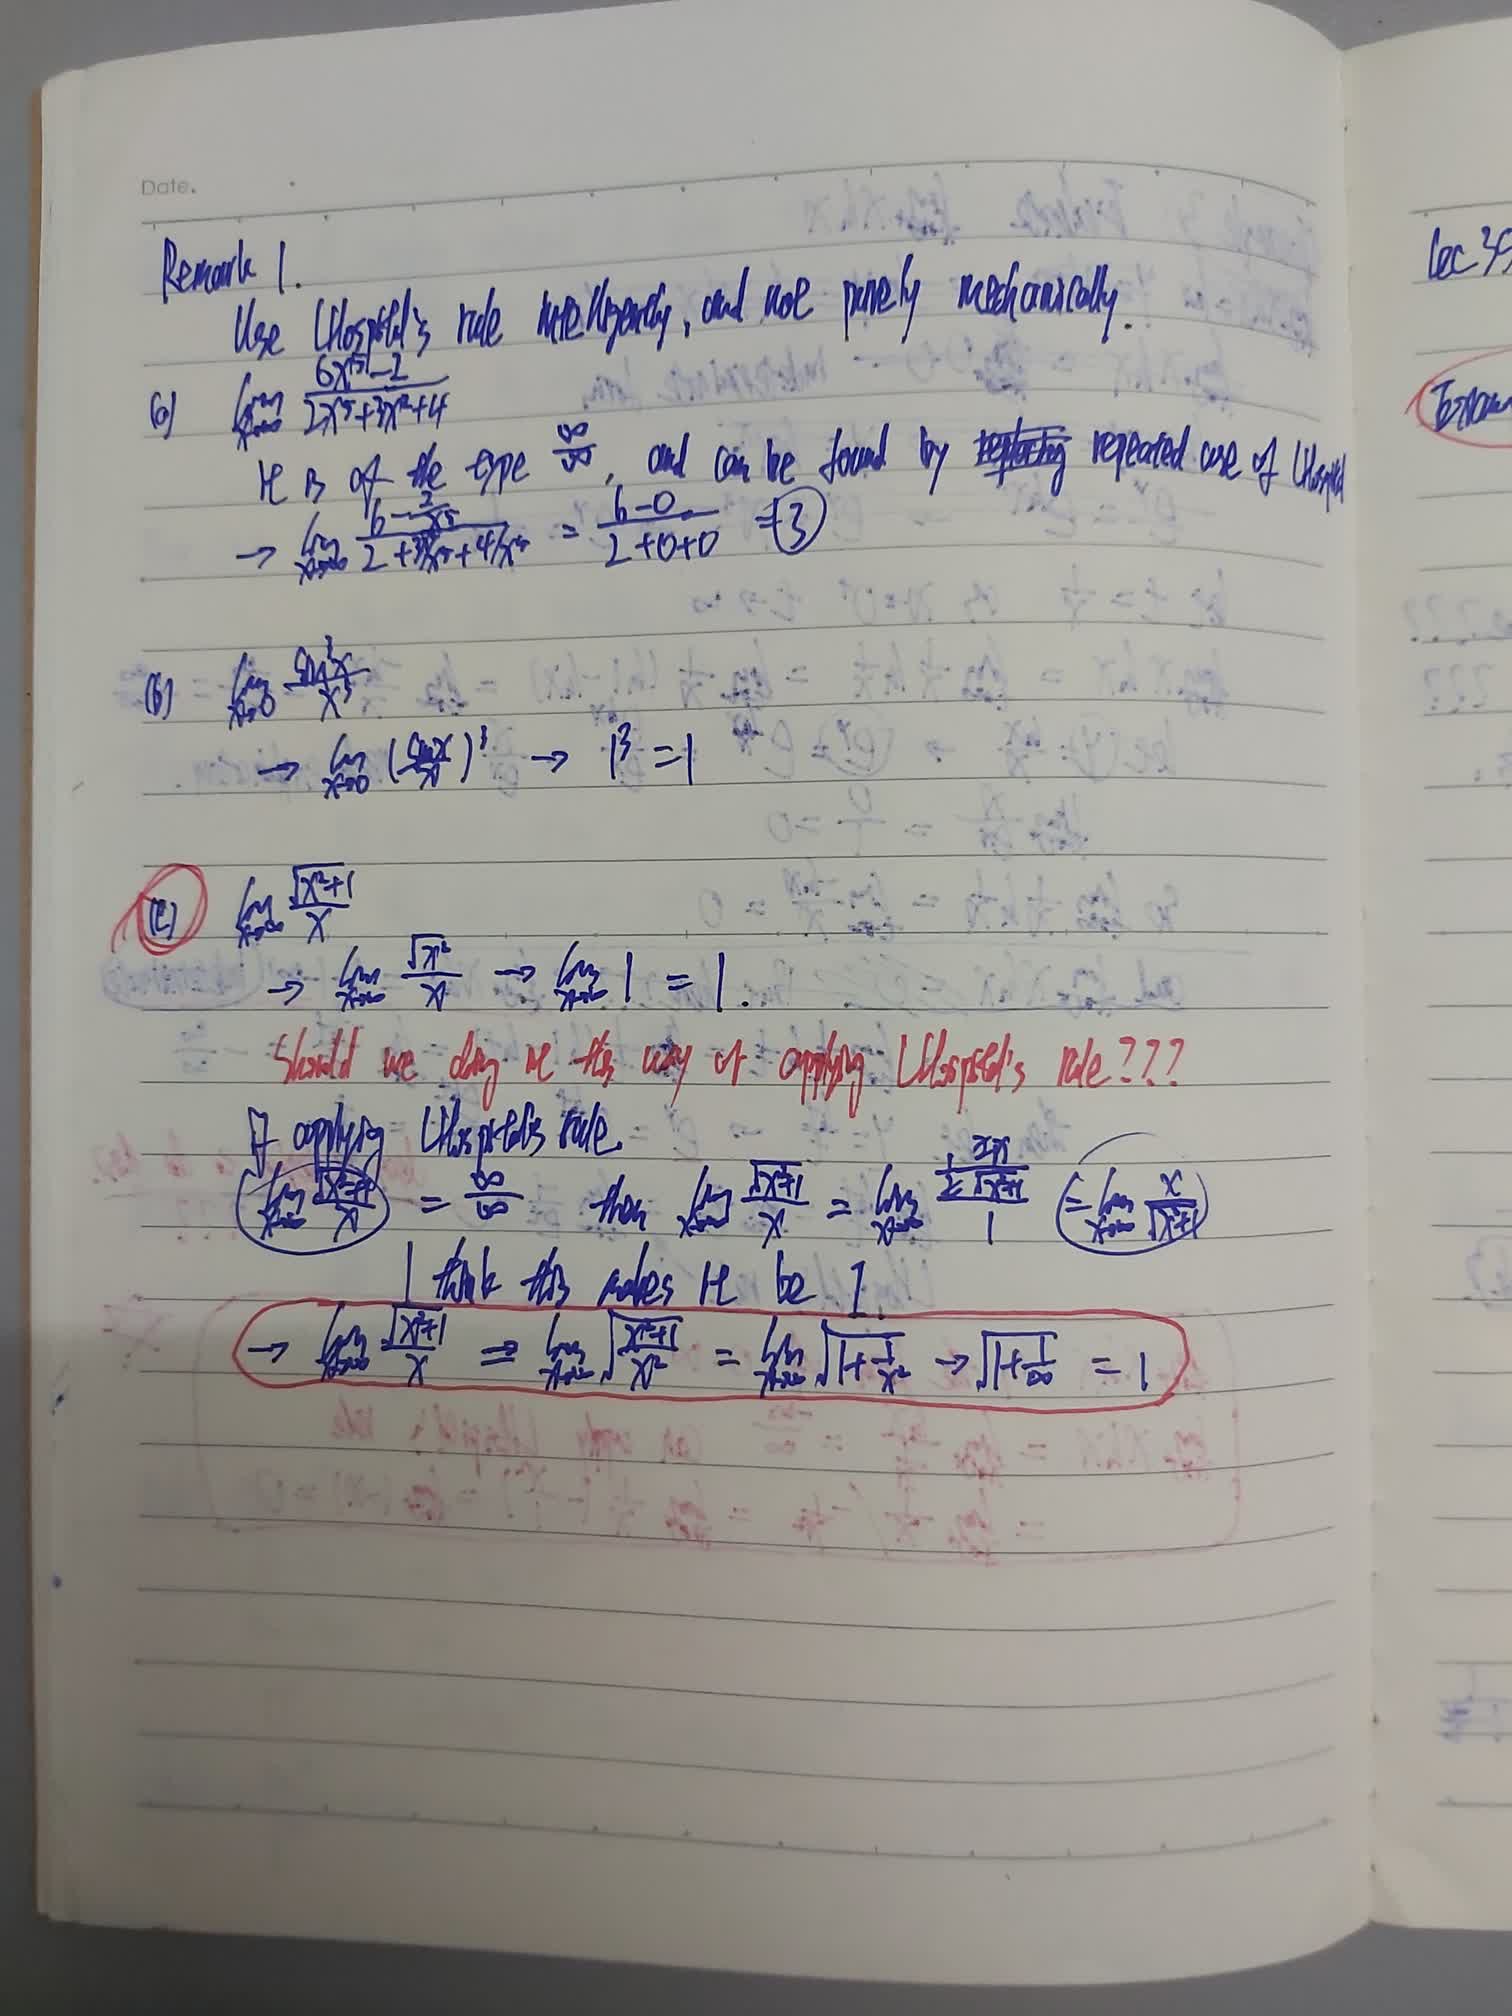 Date.
Remark 1.
Use L'Hospital's rule intelligently, and not purely mechanically.
(a) lim x→∞ (6x⁵-2)/(2x⁵+3x²+4)
It is of the type ∞/∞, and can be found by repeated use of L'Hospital
→ lim x→∞ (6-2/x⁵)/(2+3/x³+4/x⁵) = (6-0)/(2+0+0) = 3
(b) lim x→0 sin³x/x³
→ lim x→0 (sinx/x)³ → 1³ = 1
(c) lim x→∞ √(x²+1)/x
→ lim x→∞ √x²/x → lim x→∞ 1 = 1.
Should we deny it this way of applying L'Hospital's rule???
If applying L'Hospital's rule.
lim x→∞ √(x²+1)/x = ∞/∞ then lim x→∞ √(x²+1)/x = lim x→∞ (1/2 2x/√(x²+1))/1 = lim x→∞ x/√(x²+1)
I think this makes it be 1.
→ lim x→∞ √(x²+1)/x ⇒ lim x→∞ √((x²+1)/x²) = lim x→∞ √(1+1/x²) → √(1+1/∞) = 1
Lec 35